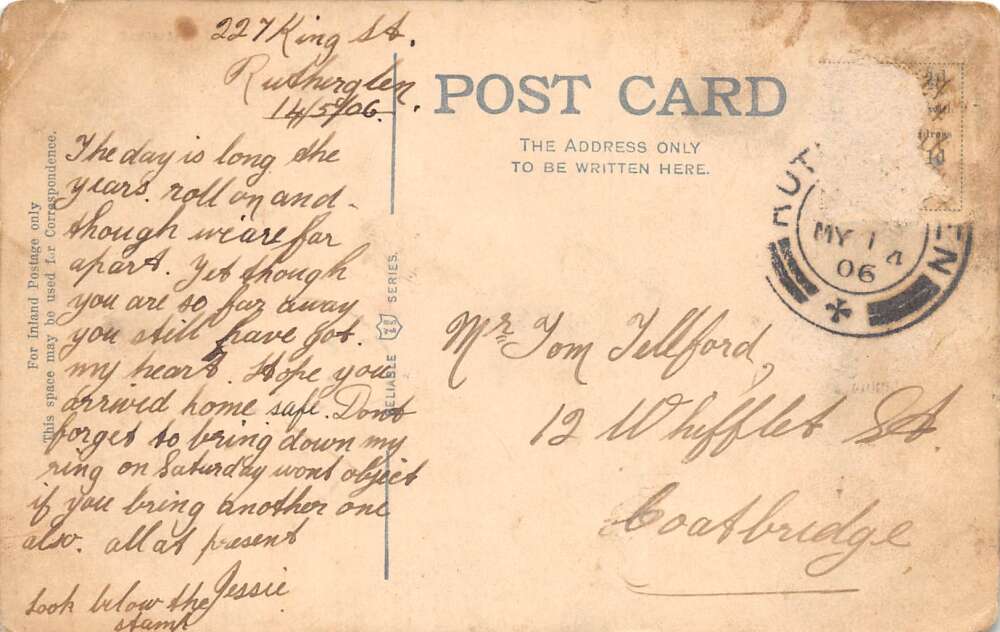 227 King St.
Rutherglen.
14/5/06.
The day is long the
years roll on and
though we are far
apart. Yet though
you are so far away
you still have got.
my heart. Hope you
arrivid home safe. Dont
forget to bring down my
ring on Saturday wont object
if you bring another one
also. all at present
Jessie
Look below the
stamp
For Inland Postage only
This space may be used for Correspondence.
RELIABLE SERIES.
POST CARD
THE ADDRESS ONLY
TO BE WRITTEN HERE.
MY 14
06
Mr. Tom Tellford,
12 Whifflet St.
Coatbridge